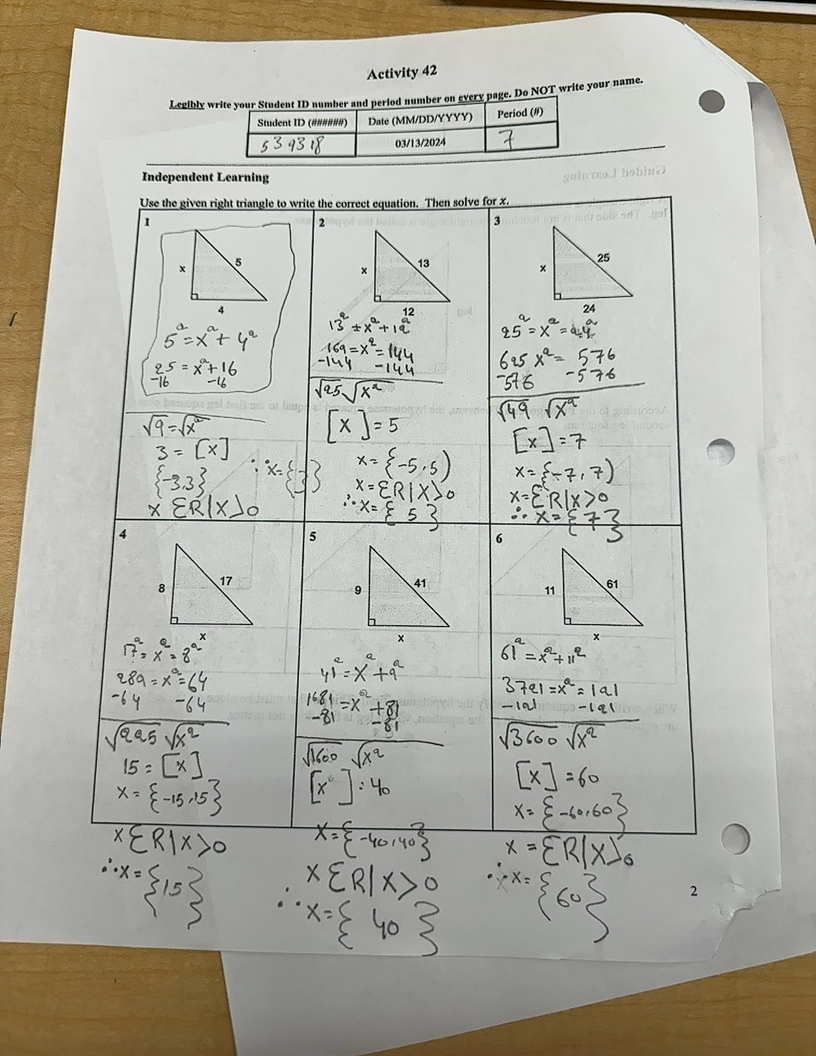 Activity 42
Legibly write your Student ID number and period number on every page. Do NOT write your name.
Student ID (######) Date (MM/DD/YYYY) Period (#)
539318 03/13/2024 7
Independent Learning
Use the given right triangle to write the correct equation. Then solve for x.
1
x 5
4
5² = x² + 4²
25 = x² + 16
-16 -16
√9 = √x²
3 = [x]
{-3,3} ∴ x = {3}
x ƐR|x>0
2
x 13
12
13² ± x² + 12²
169 = x² = 144
-144 -144
√25 √x²
[x] = 5
x = {-5,5)
x = ƐR|x>0
∴ x = {5}
3
x 25
24
25² = x² = 24²
625 x² = 576
-576 -576
√49 √x²
[x] = 7
x = {-7,7)
x = ƐR|x>0
∴ x = {7}
4
8 17
x
17² = x² = 8²
289 = x² = 64
-64 -64
√225 √x²
15 = [x]
x = {-15,15}
x ƐR|x>0
∴ x = {15}
5
9 41
x
41² = x² + 9²
1681 = x² + 81
-81 -81
√1600 √x²
[x] = 40
x = {-40,40}
x ƐR|x>0
∴ x = {40}
6
11 61
x
61² = x² + 11²
3721 = x² = 121
-121 -121
√3600 √x²
[x] = 60
x = {-60,60}
x = ƐR|x>0
∴ x = {60}
2